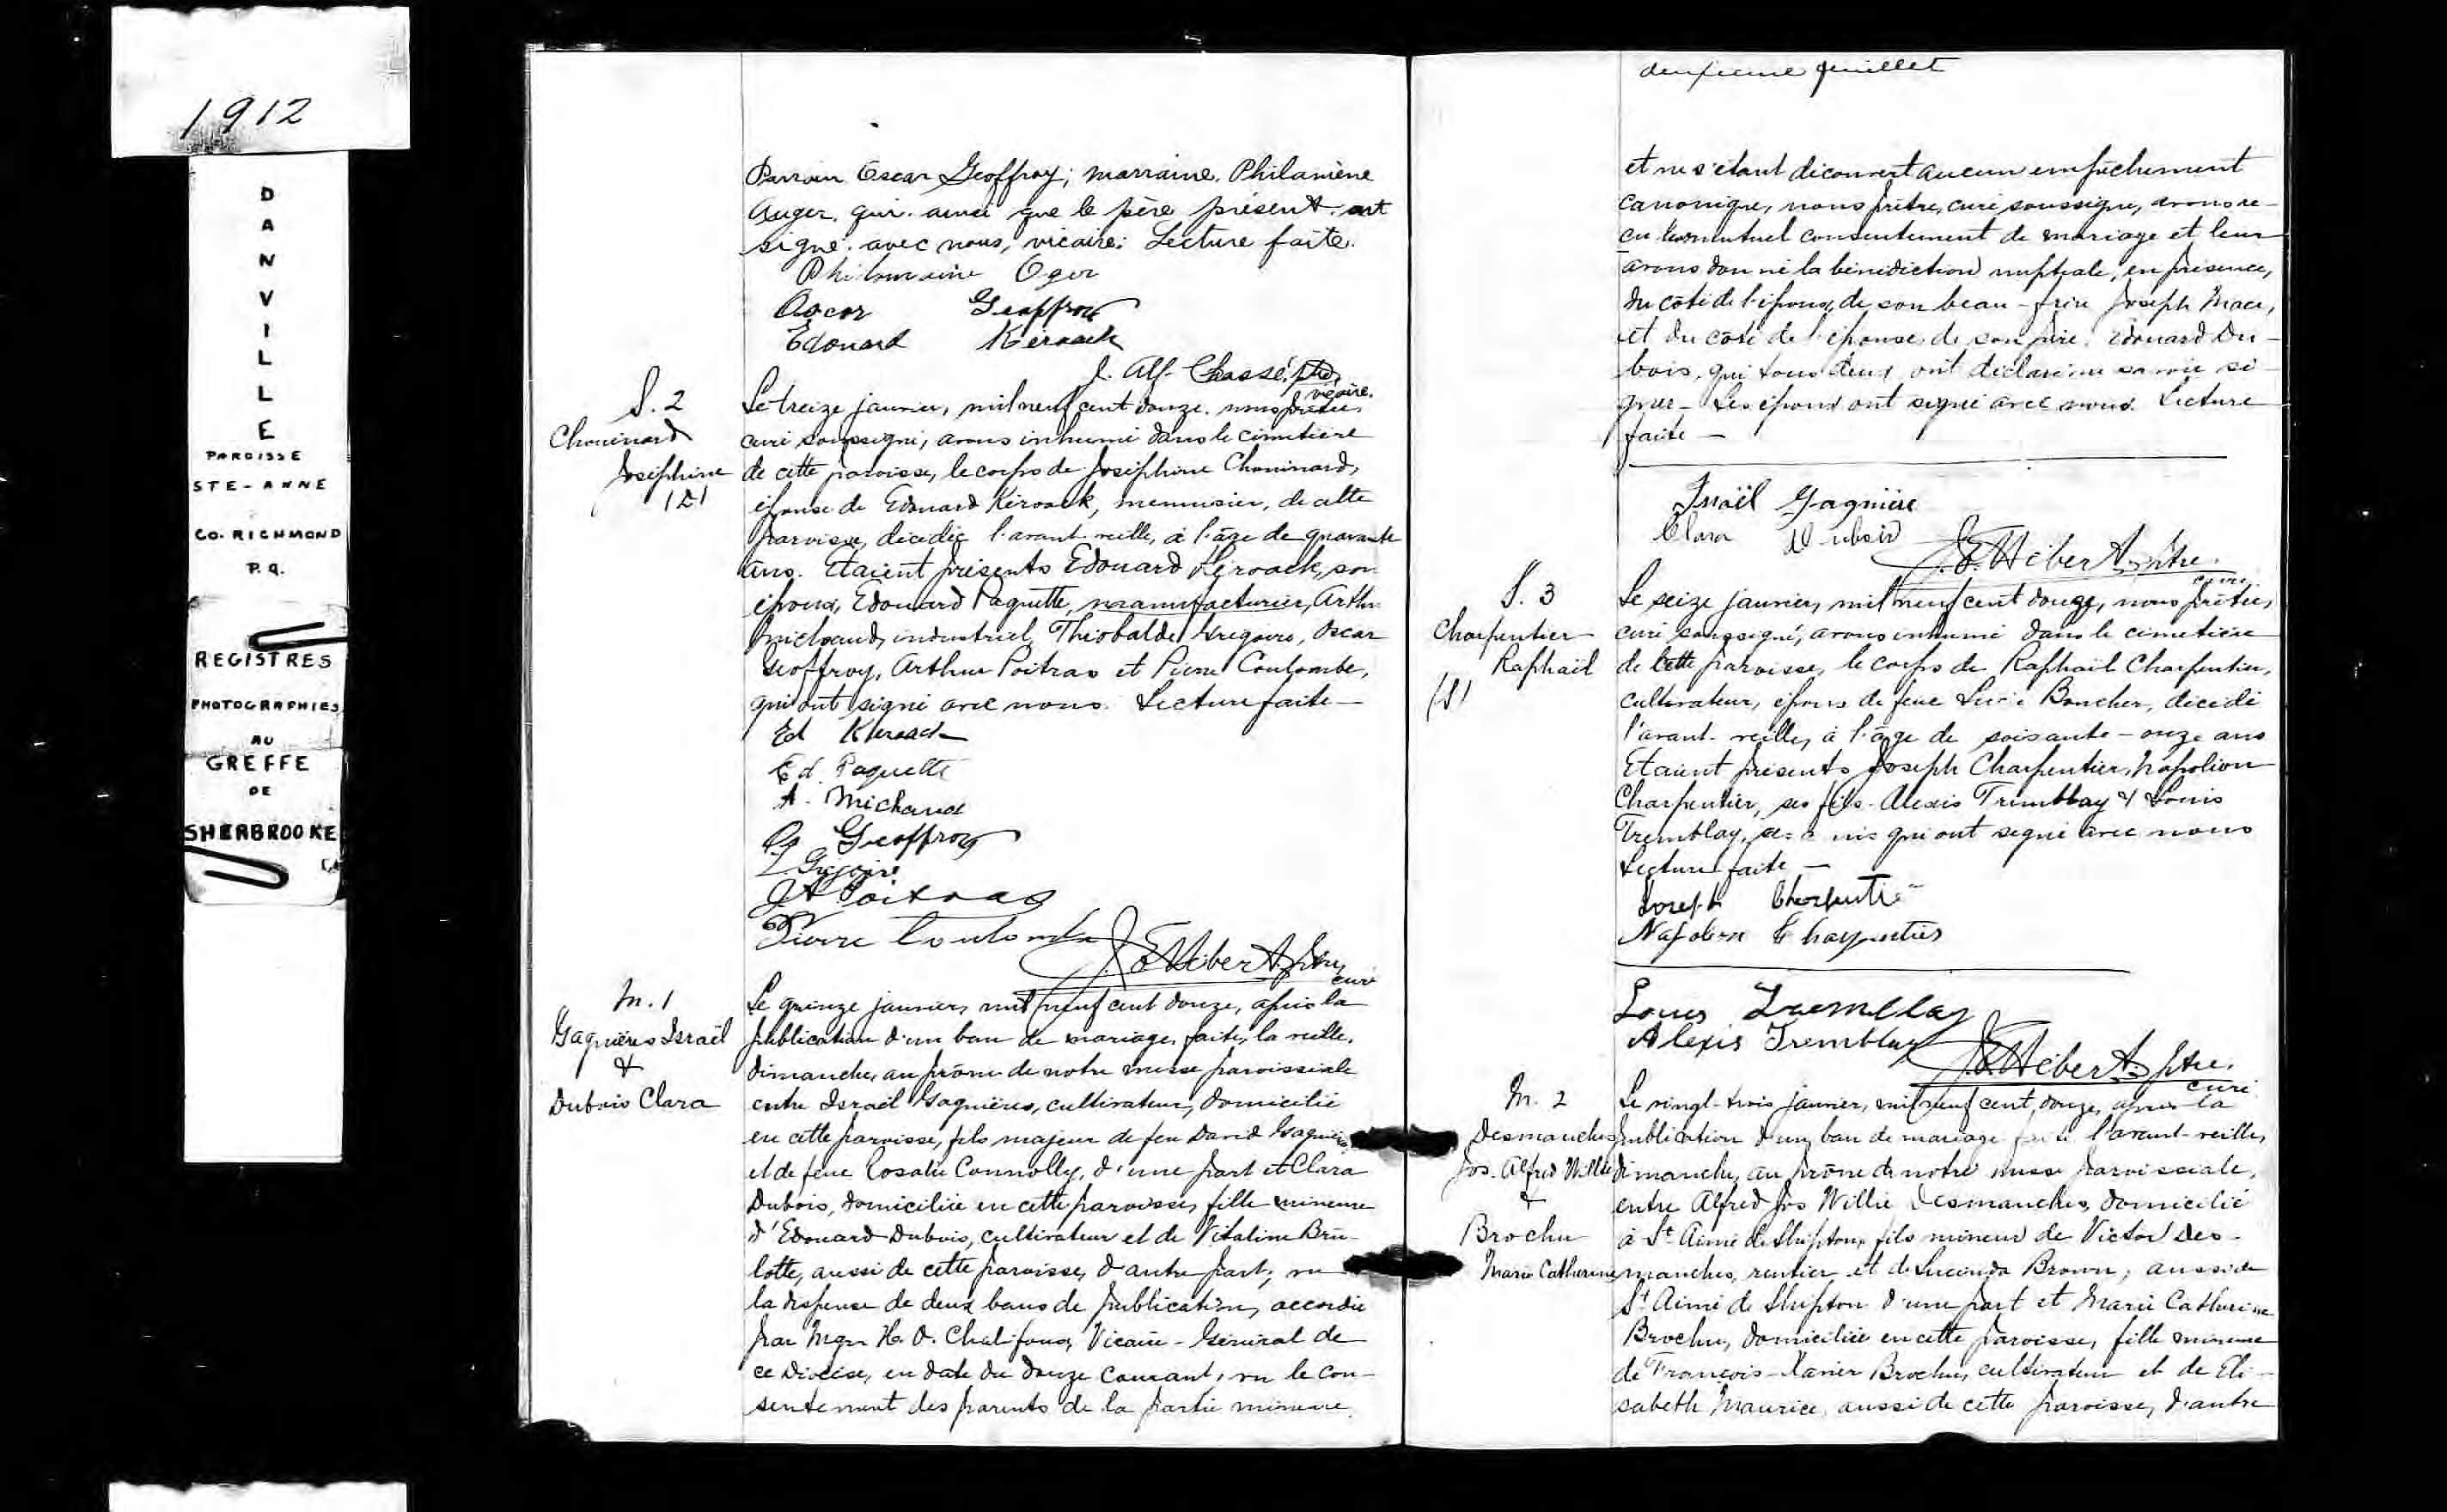 1912
DANVILLE
PAROISSE
STE-ANNE
CO. RICHMOND
P.Q.
REGISTRES
PHOTOGRAPHIES
AU
GREFFE
DE
SHERBROOKE
Parrain Oscar Geoffroy; marraine. Philamène
Auger. qui. ainsi que le père présent. ont
signé. avec nous, vicaire. Lecture faite.
Oger
Oscar Geoffroy
Edouard Kéroack
J. Alf. Chassé, ptre,
vicaire.
S. 2
Chouinard
Joséphine
Le treize janvier, mil neuf cent douze. nous prêtre,
curé soussigné, avons inhumé dans le cimetière
de cette paroisse, le corps de Joséphine Chouinard,
épouse de Edouard Kéroack, menuisier, de cette
paroisse, décédée l'avant-veille, à l'âge de quarante
ans. Etaient présents Edouard Kéroack, son
époux, Edouard Paquette, manufacturier, Arthur
Michaud, industriel, Théobalde Grégoire, Oscar
Geoffroy, Arthur Poitras et Pierre Coulombe,
qui ont signé avec nous. Lecture faite —
Ed Kéroack
Ed. Paquette
A. Michaud
Geoffroy
Grégoire
J A Poitras
Pierre Coulombe
J. E. Hébert. ptre,
curé
M. 1
Gagnières Israël
&
Dubois Clara
Le quinze janvier, mil neuf cent douze, après la
publication d'un ban de mariage, faite, la veille,
dimanche, au prône de notre messe paroissiale
entre Israël Gagnières, cultivateur, domicilié
en cette paroisse, fils majeur de feu David Gagnières
et de feue Rosalie Connolly, d'une part et Clara
Dubois, domiciliée en cette paroisse, fille mineure
d'Edouard Dubois, cultivateur et de Vitaline Bru-
lotte, aussi de cette paroisse, d'autre part; vu
la dispense de deux bans de publication, accordée
par Mgr H. O. Chalifoux, Vicaire-Général de
ce Diocèse, en date du douze courant, vu le con-
sentement des parents de la partie mineure
deuxieme feuillet
et ne s'étant découvert aucun empêchement
canonique, nous prêtre, curé soussigné, avons re-
çu leur mutuel consentement de mariage et leur
avons donné la bénédiction nuptiale, en présence,
du côté de l'époux, de son beau-frère Joseph Mace,
et du côté de l'épouse, de son père, Edouard Du-
bois, qui tous deux ont déclaré ne savoir si-
gner - Les époux ont signé avec nous. Lecture
faite —
Israël Gagnière
Clara Dubois
J. E. Hébert. ptre.
curé.
S. 3
Charpentier
Raphaël
Le seize janvier, mil neuf cent douze, nous prêtre,
curé soussigné, avons inhumé dans le cimetière
de cette paroisse, le corps de Raphaël Charpentier,
cultivateur, époux de feue Lucie Boucher, décédé
l'avant-veille, à l'âge de soixante-onze ans
Etaient présents Joseph Charpentier, Napoléon
Charpentier, ses fils - Alexis Trembbay & Louis
Tremblay, qui ont signé avec nous
Lecture faite —
Joseph Charpentier
Napoléon Charpentier
Louis Tremblay
Alexis Tremblay
J. E. Hébert. ptre.
curé.
M. 2
Desmanches
Jos. Alfred Willie
&
Brochu
Marie Catherine
Le vingt-trois janvier, mil neuf cent douze, après la
publication d'un ban de mariage faite l'avant-veille,
dimanche, au prône de notre messe paroissiale,
entre Alfred Jos Willie Desmanches, domicilié
à St Aimé de Shipton, fils mineur de Victor Des-
manches, rentier et de Lucinda Brown, aussi de
St Aimé de Shipton d'une part et Marie Catherine
Brochu, domiciliée en cette paroisse, fille mineure
de François-Xavier Brochu, cultivateur et de Eli-
sabeth Maurice, aussi de cette paroisse, d'autre